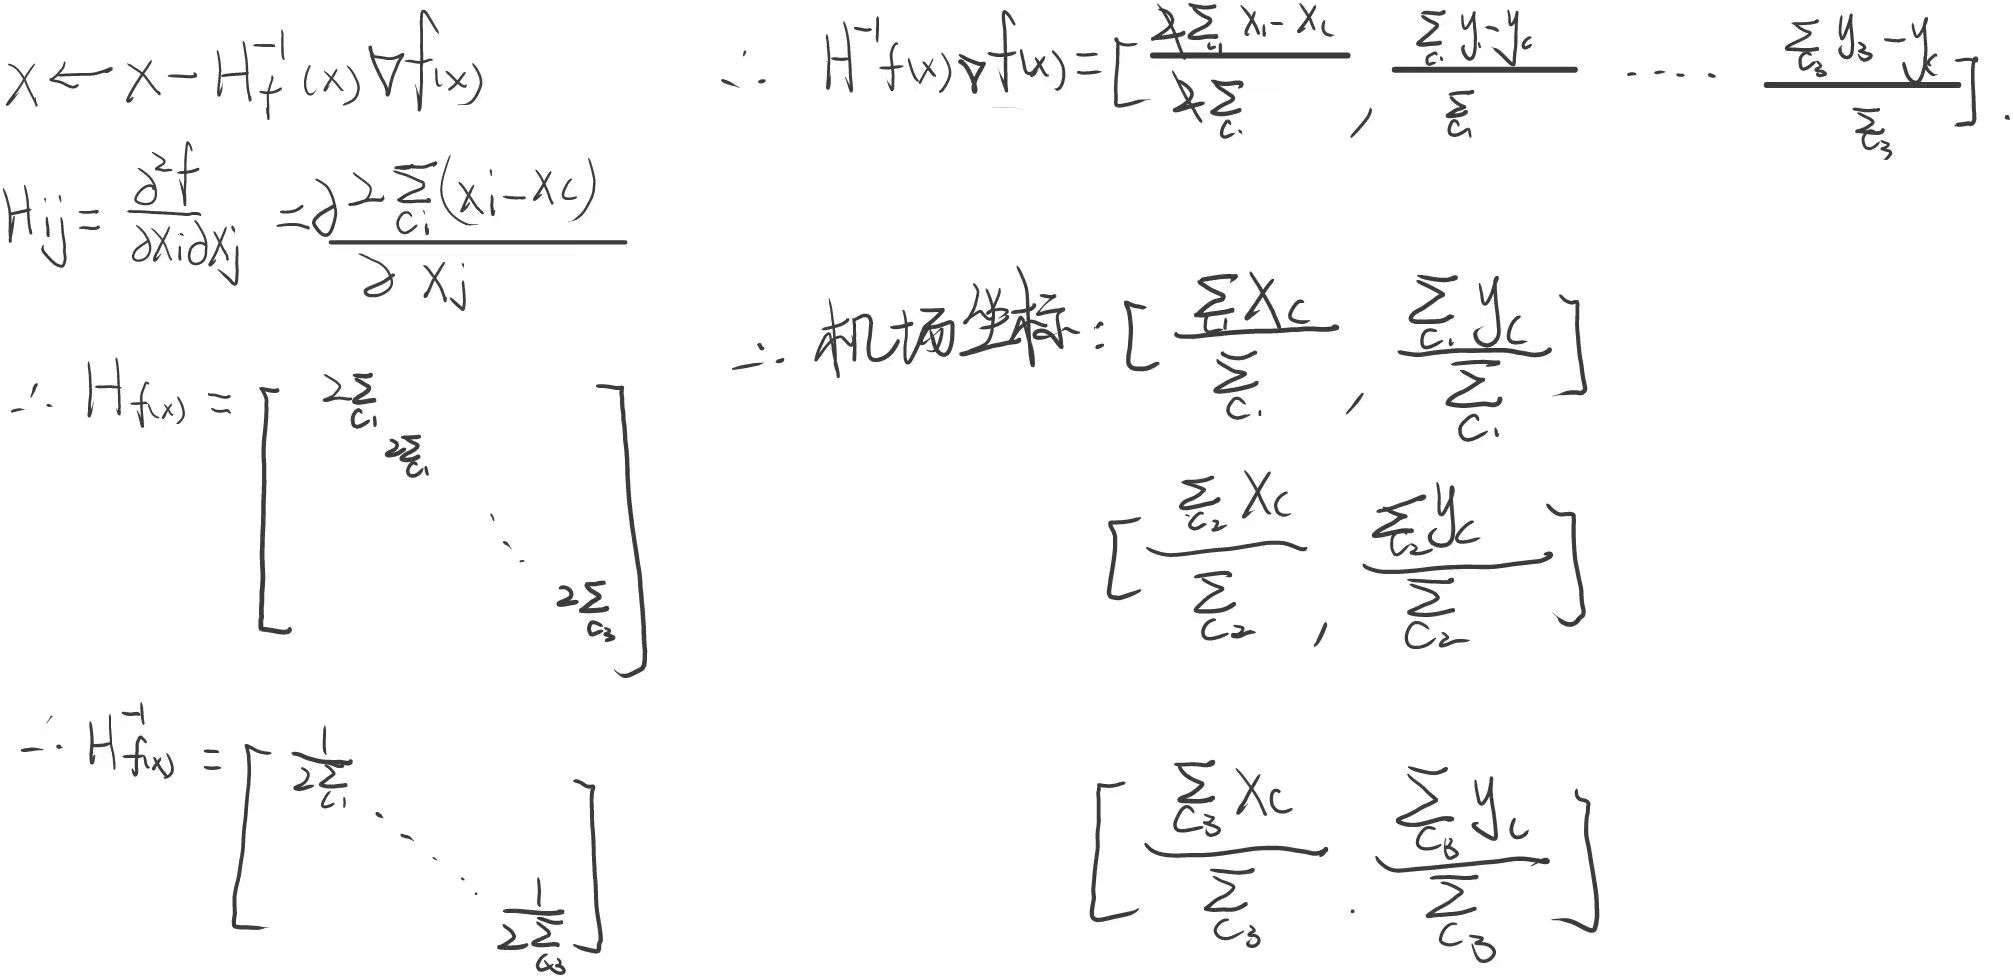 x ← x − H_f^{-1}(x) ∇f(x)
H_{ij} = \frac{∂^2 f}{∂x_i ∂x_j} = \frac{∂ 2 \sum_{C_i} (x_i − x_c)}{∂ x_j}
∴ H_{f(x)} = [ 2\sum_{C_1}
2\sum_{C_1}
⋱
2\sum_{C_3} ]
∴ H^{-1}_{f(x)} = [ \frac{1}{2\sum_{C_1}}
⋱
\frac{1}{2\sum_{C_3}} ]
∴ H^{-1} f(x) ∇f(x) = [ \frac{2\sum_{C_1} x_1 − x_c}{2\sum_{C_1}} , \frac{\sum_{C_1} y_1 − y_c}{\sum_{C_1}} ···· \frac{\sum_{C_3} y_3 − y_c}{\sum_{C_3}} ] .
∴ 机场坐标: [ \frac{\sum_{C_1} x_c}{\sum_{C_1}} , \frac{\sum_{C_1} y_c}{\sum_{C_1}} ]
[ \frac{\sum_{C_2} x_c}{\sum_{C_2}} , \frac{\sum_{C_2} y_c}{\sum_{C_2}} ]
[ \frac{\sum_{C_3} x_c}{\sum_{C_3}} . \frac{\sum_{C_3} y_c}{\sum_{C_3}} ]